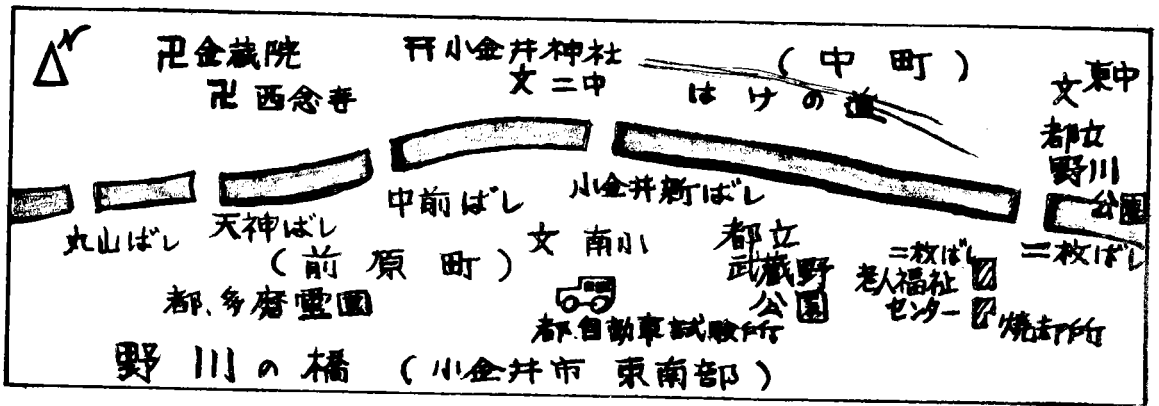 N
卍金蔵院
卍西念寺
⛩小金井神社
文二中
(中町)
はけの道
文東中
都立
野川
公園
丸山ばし
天神ばし
中前ばし
小金井新ばし
二枚ばし
(前原町)
文南小
都立
武蔵野
公園
二枚ばし
老人福祉
センター
焼却所
都.多磨霊園
都.自動車試験所
野川の橋 (小金井市 東南部)